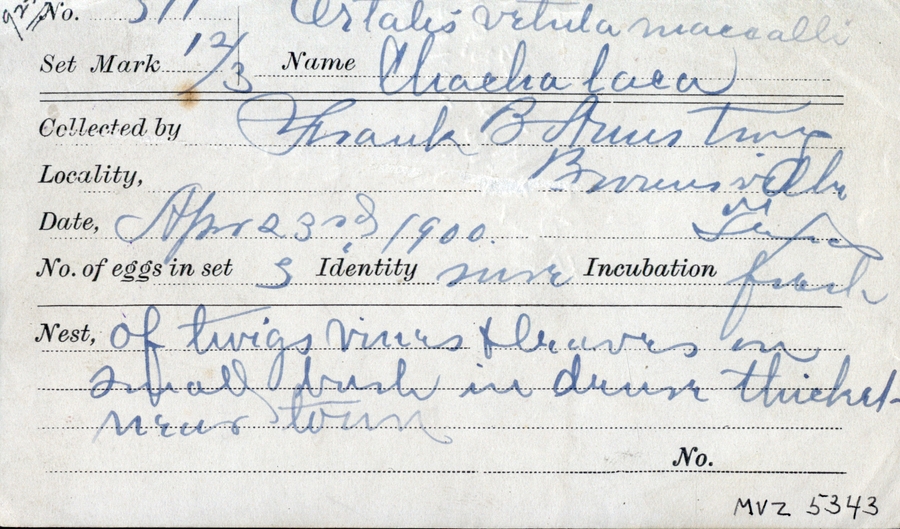 No. 311 Ortalis vetula maccalli
Set Mark 12/3 Name Chachalaca
Collected by Frank B Armstrong
Locality, Brownsville
Date, Apr 23rd, 1900. Texas
No. of eggs in set 3 Identity sure Incubation fresh
Nest, of twigs vines & leaves in
small bush in dense thicket
near town
No.
MVZ 5343